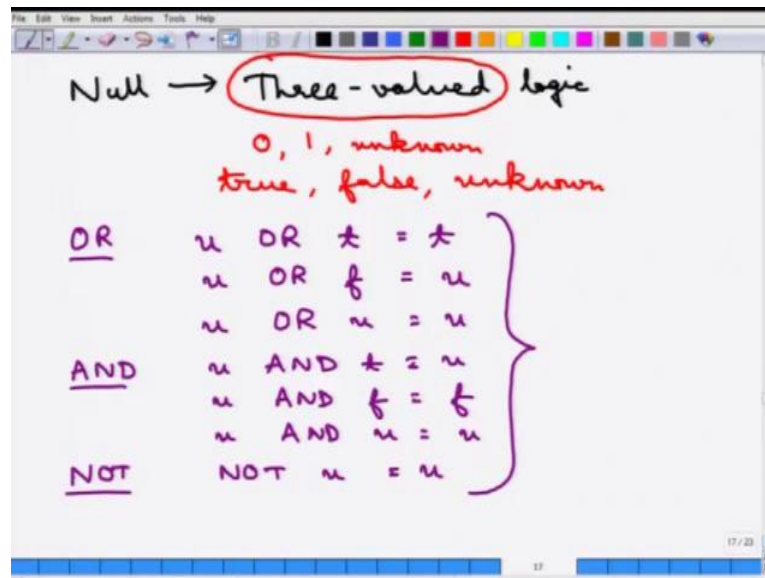 File Edit View Insert Actions Tools Help
Null → Three-valued logic
0, 1, unknown
true, false, unknown
OR u OR t = t
u OR f = u
u OR u = u
AND u AND t = u
u AND f = f
u AND u = u
NOT NOT u = u
17/23
17